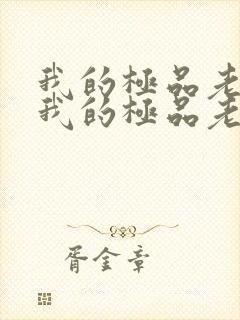 我的極品老
我的極品老
胥金章